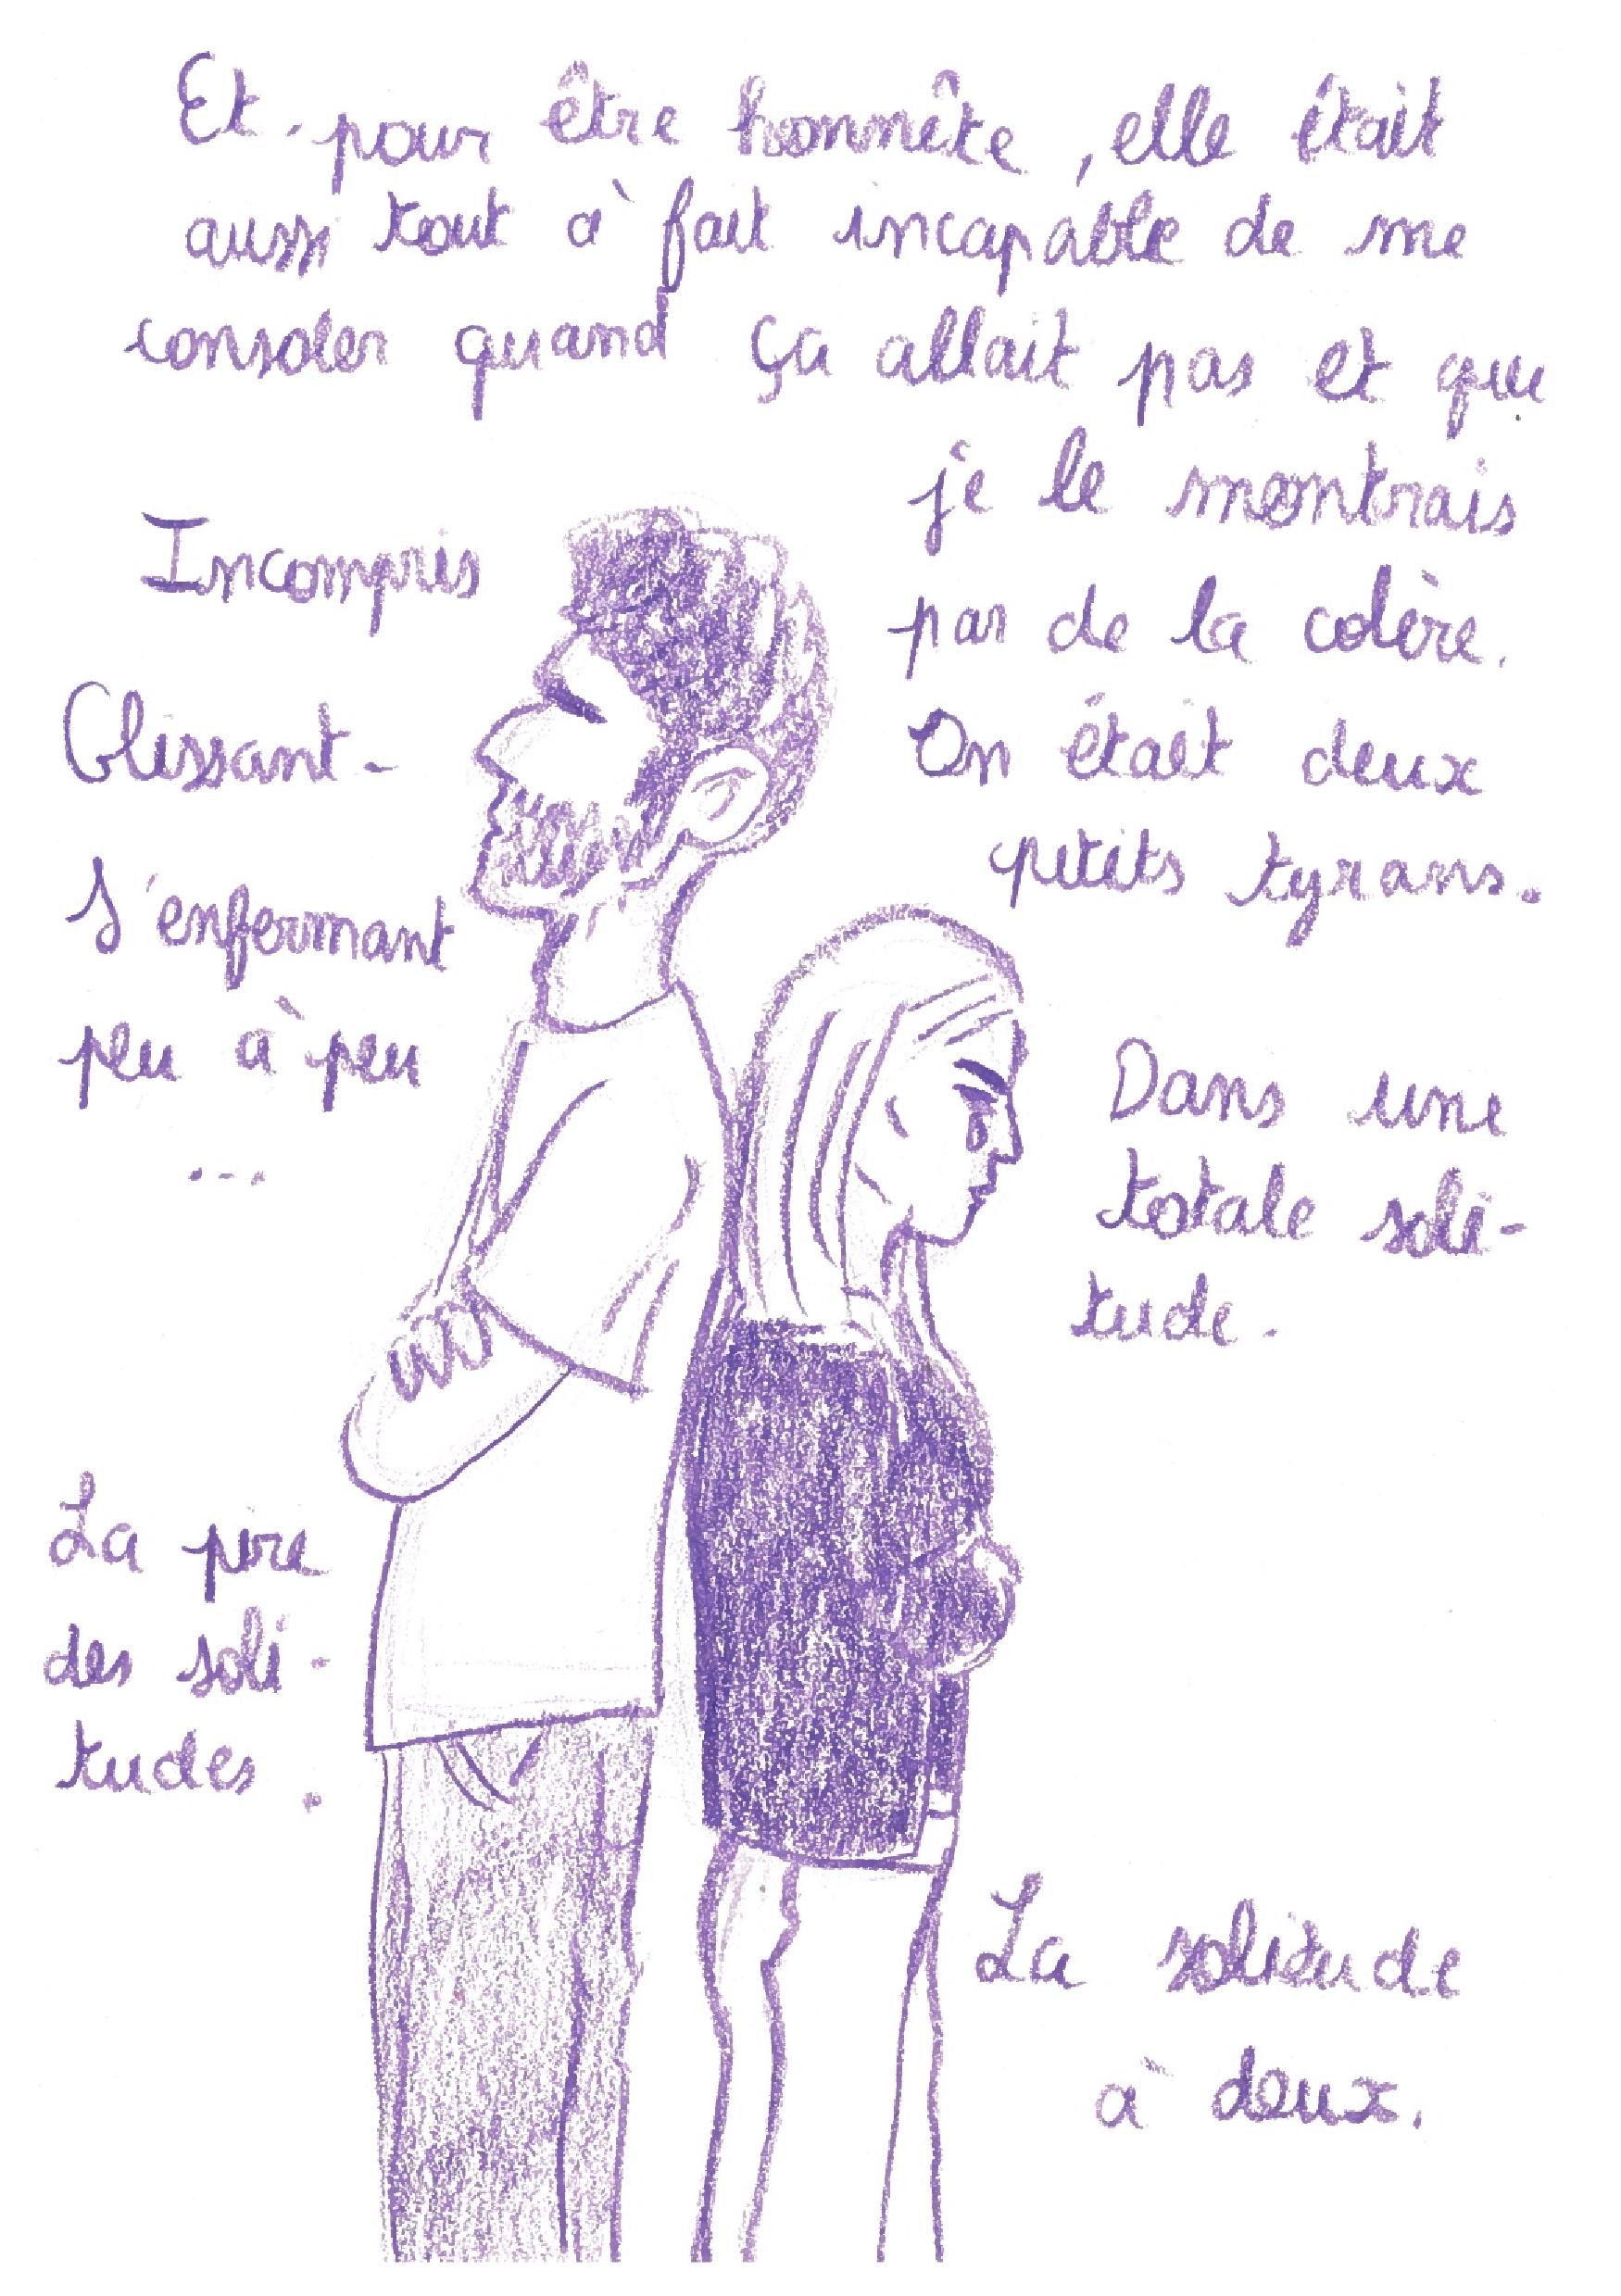 Et pour être honnête, elle était
aussi tout à fait incapable de me
consoler quand ça allait pas et que
je le montrais
par de la colère.
On était deux
petits tyrans.
Incompris
Glissant-
S'enfermant
peu à peu
...
Dans une
totale soli-
tude.
La pire
des soli-
tudes.
La solitude
à deux.